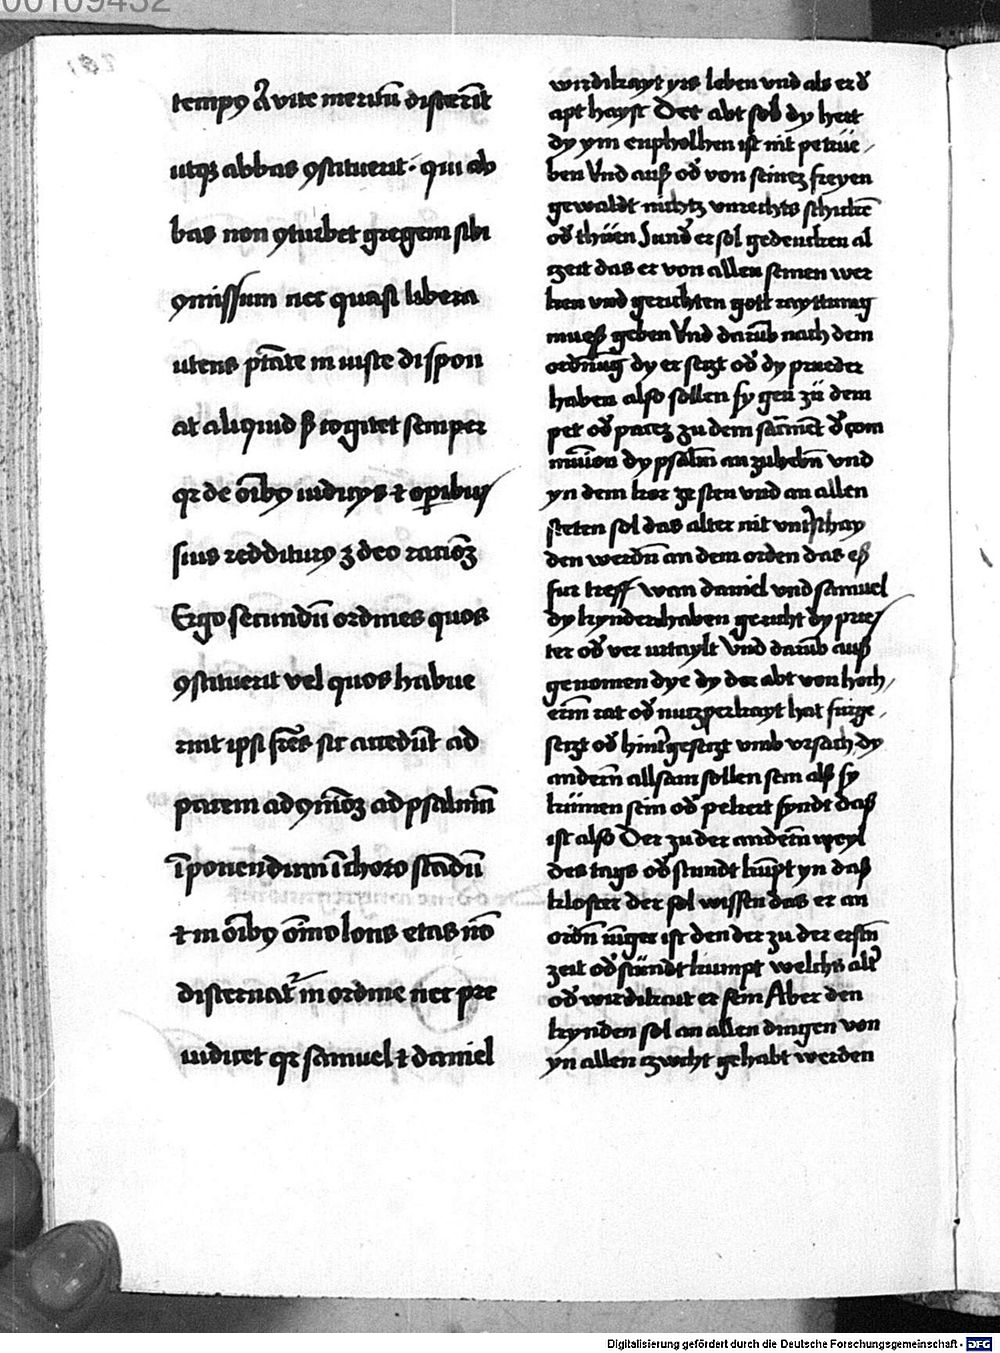 tempꝯ ⁊ vite meritū discernit
utqꝫ abbas ꝯstituerit · qui ab
bas non ꝯturbet gregem sibi
ꝯmissum nec quasi libera
utens ptāte in iuste dispon
at aliquid sꝫ cogitet semper
qꝛ de oībꝯ iudicijs ⁊ operibus
suis redditurꝯ ꝫ deo racioꝫ
Ergo secundū ordines quos
ꝯstituerit vel quos habue
rint ipsi fres sic accedūt ad
pacem ad ꝯmioꝫ ad psalmū
īponendum ī choro standū
⁊ in oībꝯ oīno locis etas nō
discernat᷑ in ordine nec pre
iudicet qꝛ samuel ⁊ daniel
wirdikayt yrs leben vnd als er d̄
apt hayst Der abt sol dy hert
dy ym enpholhen ist nit petrüe
ben Vnd auß od̄ von seinez freyen
gewaldt nichtz vnrechts schickē
od̄ thüen Sund̄ er sol gedencken al
zeit das er von allen seinen wer
ken vnd gerichten gott rayttung
mueß geben Vnd darūb nach dem
ordnūg dy er setzt od̄ dy prueder
haben also sollen sy gen zü dem
pet od̄ pacez zu dem sacmēt d̄ com
mūion dy psalm an zuhebn̄ vnd
yn dem kor ze sten vnd an allen
steten sol das alter nit vnt᷑schay
den werdn̄ an dem orden das eß
fur treff wan daniel vnd samuel
dy kynder haben gericht dy prie
ster od̄ ver urtaylt Vnd darūb auß
genomen dye dy der abt von hoch
erm rat od̄ nutzperkayt hat fürge
setzt od̄ hint᷑gesetzt vmb vrsach dy
andern̄ allsam sollen sein alß sy
kümen sein od̄ pekert syndt daß
ist also Der zu der andern̄ weyl
des tags od̄ stundt kūpt yn daß
kloster der sol wissen das er an
ordn̄ iūger ist den der zu der erstn̄
zeit od̄ stündt kumpt welchs alt᷑
od̄ wirdikait er sein Aber den
kynden sol an allen dingen von
yn allen zwcht gehabt werden
Digitalisierung gefördert durch die Deutsche Forschungsgemeinschaft - DFG